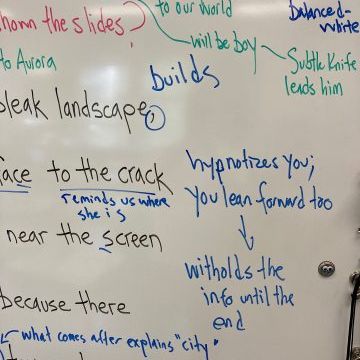 shown the slides,
to our world
balanced-
white
will be boy
to Aurora
Subtle Knife
leads him
builds
bleak landscape,
face to the crack
reminds us where
she is
hypnotizes you;
you lean forward too
near the screen
witholds the
info until the
end
because there
what comes after explains "city"